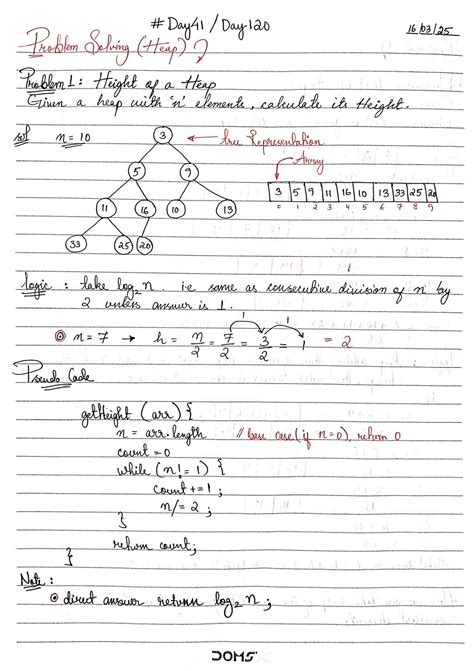 # Day41 / Day-120
16/03/25
Problem Solving (Heap)
Problem 1: Height of a Heap
Given a heap with 'n' elements, calculate its Height.
sol n = 10
3 ← tree Representation
Array
5 9
3 5 9 11 16 10 13 33 25 20
0 1 2 3 4 5 6 7 8 9
11 16 10 13
33 25 20
logic : take log₂ n. i.e same as consecutive division of n by
2 unless answer is 1.
1 1
n = 7 → h = n/2 = 7/2 = 3/2 = 1 = 2
Pseudo Code
getHeight (arr) {
n = arr.length // base case (if n=0), return 0
count = 0
while (n! = 1) {
count += 1 ;
n /= 2 ;
}
return count;
}
Note :
direct answer return log₂ n ;
DOMS